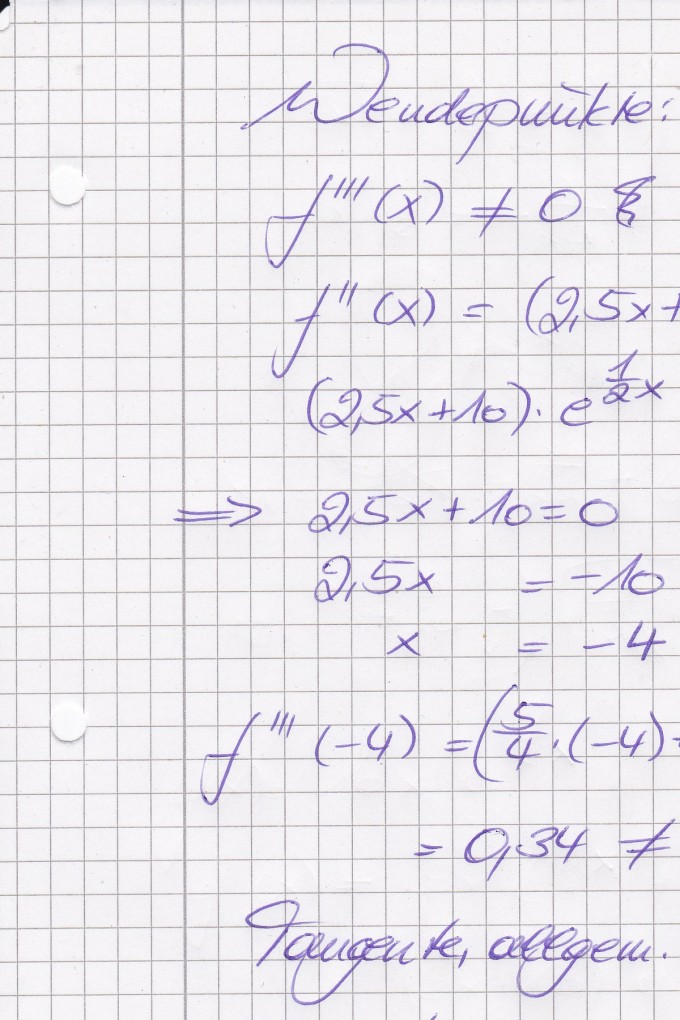 Wendepunkte:
f'''(x) ≠ 0
f''(x) = (2,5x+
(2,5x+10)· e^{\frac{1}{2}x}
⇒ 2,5x+10=0
2,5x = -10
x = -4
f'''(-4) =(\frac{5}{4}·(-4)+
= 0,34 ≠
Tangente, allgem.